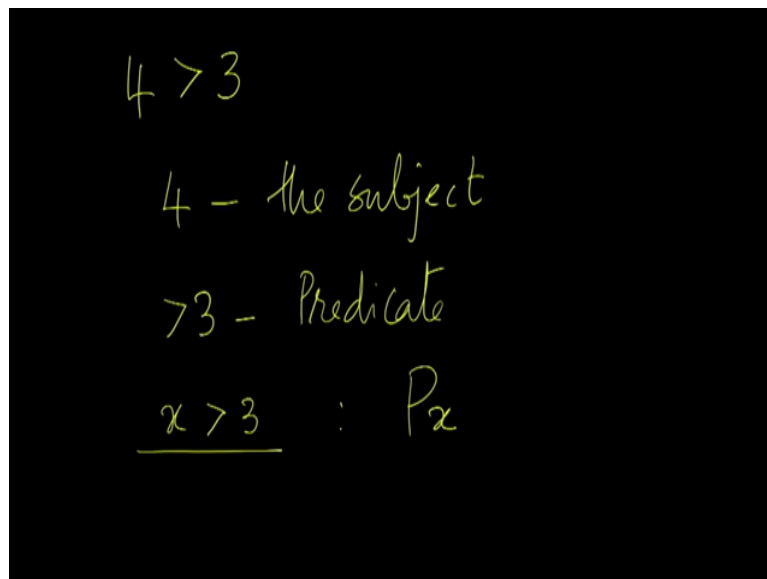 4 > 3
4 - the subject
>3 - Predicate
x > 3 : Px